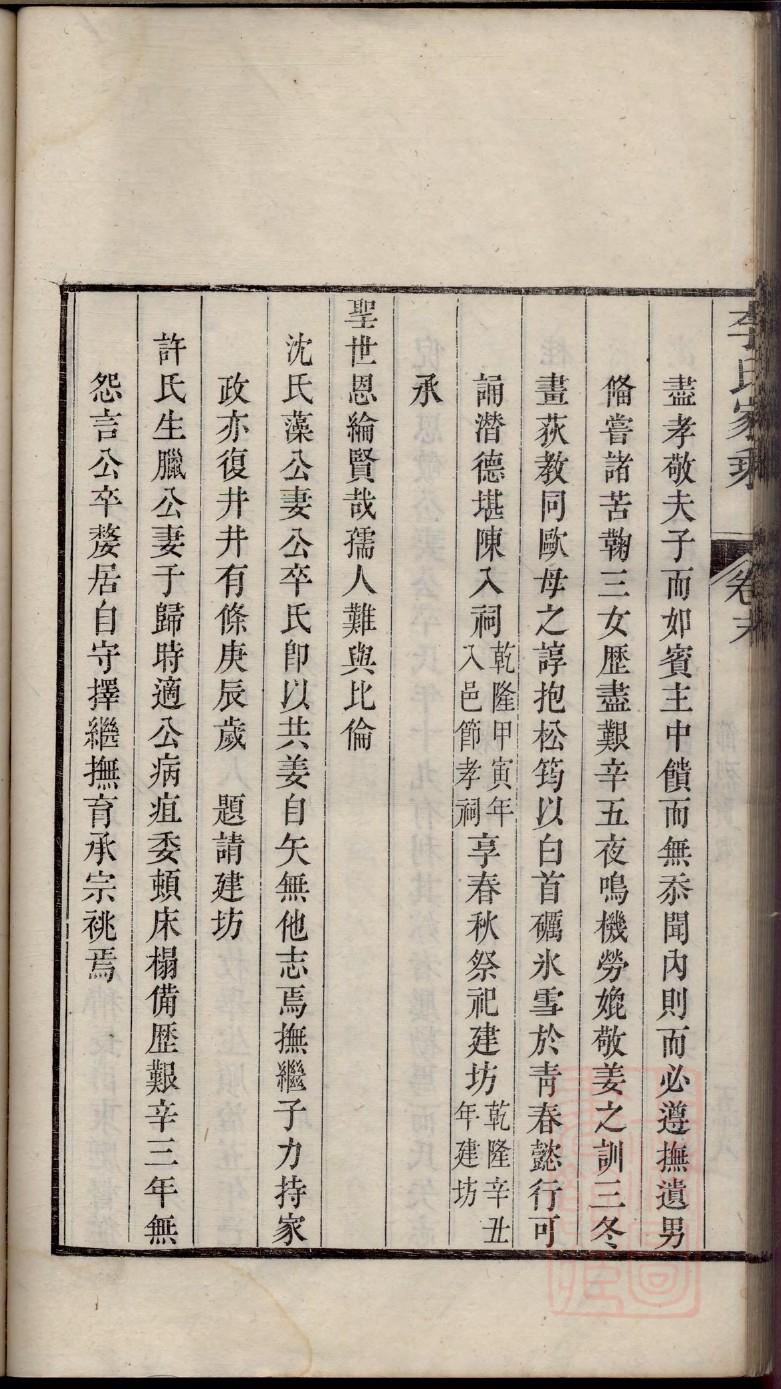 李氏家乘 卷末
盡孝敬夫子而如賓主中饋而無忝聞內則而必遵撫遺男
偹嘗諸苦鞠三女歷盡艱辛五夜鳴機勞媲敬姜之訓三冬
畫荻教同歐母之諄抱松筠以白首礪氷雪於青春懿行可
誦潛德堪陳入祠乾隆甲寅年入邑節孝祠享春秋祭祀建坊乾隆辛丑年建坊
承
聖世恩綸賢哉孺人難與比倫
沈氏藻公妻公卒氏卽以共姜自矢無他志焉撫繼子力持家
政亦復井井有條庚辰歲 題請建坊
許氏生臘公妻于歸時適公病疽委頓床榻備歷艱辛三年無
怨言公卒嫠居自守擇繼撫育承宗祧焉